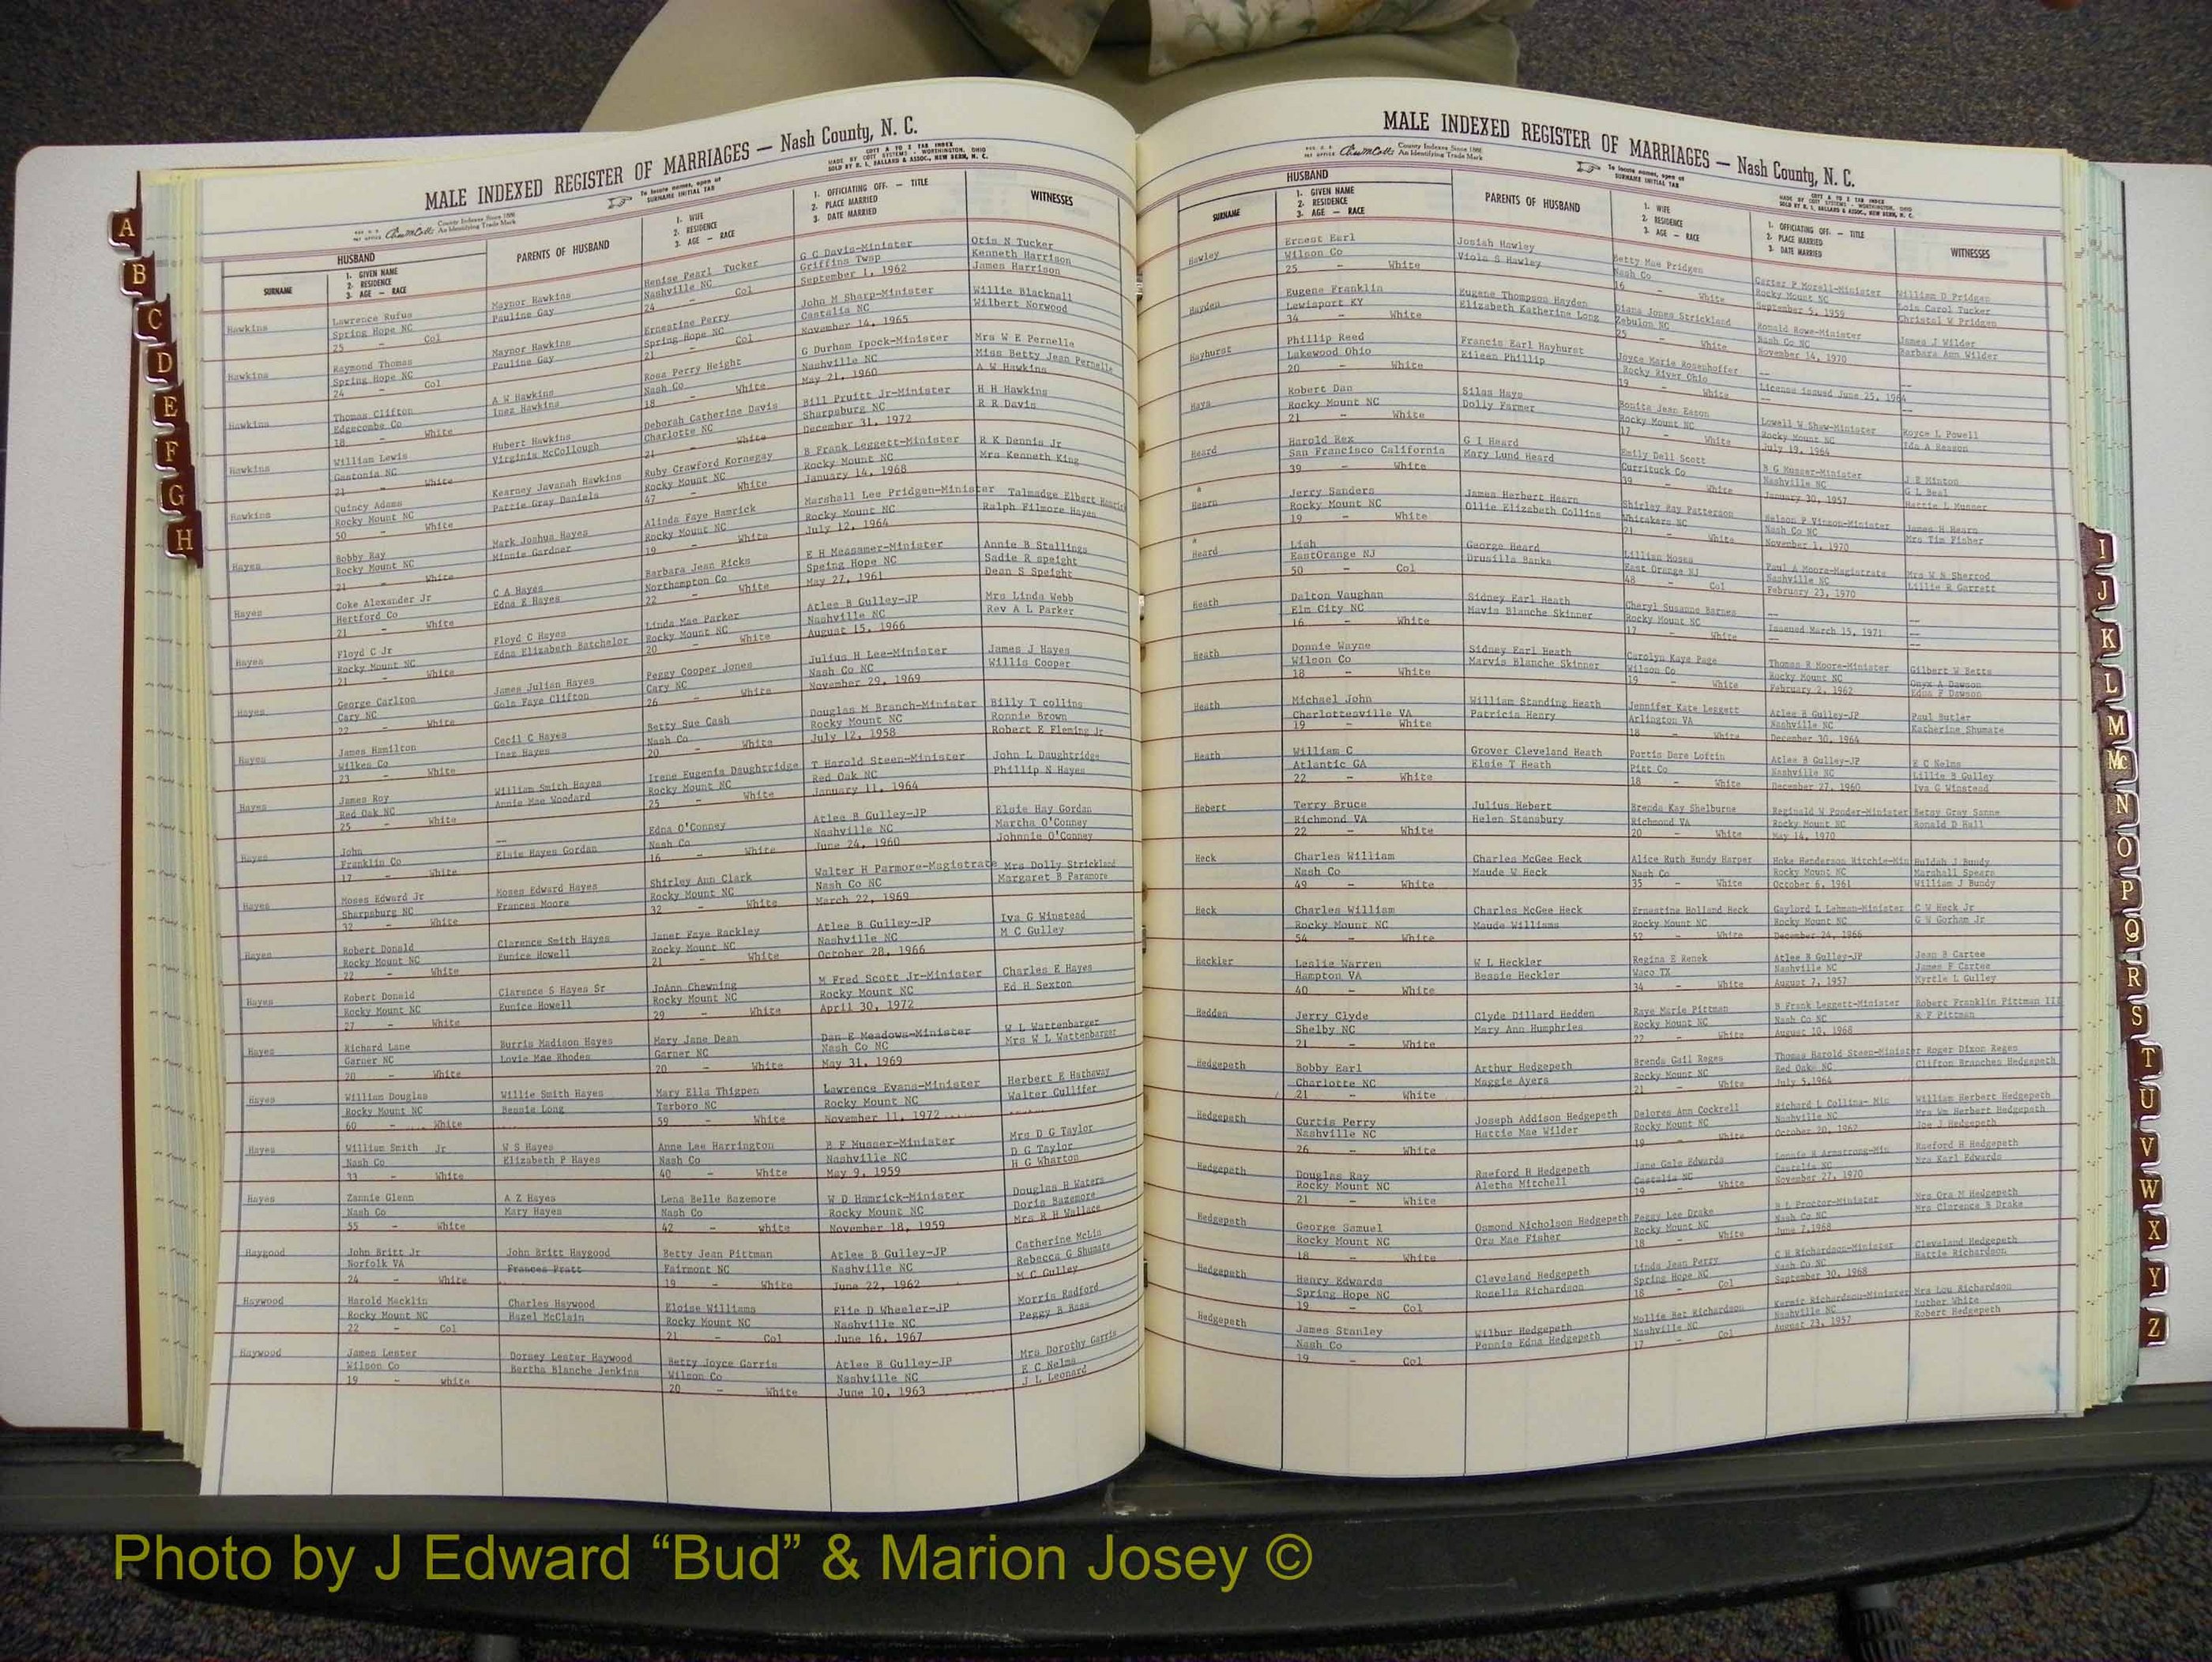 MALE INDEXED REGISTER OF MARRIAGES — Nash County, N. C.
County Indexes Since 1888
An Identifying Trade Mark
To locate names, open at
SURNAME INITIAL TAB
COTT A TO Z TAB INDEX
MADE BY COTT SYSTEMS - WORTHINGTON, OHIO
SOLD BY R. L. BALLARD & ASSOC., NEW BERN, N. C.
HUSBAND
SURNAME
1. GIVEN NAME
2. RESIDENCE
3. AGE — RACE
PARENTS OF HUSBAND
1. WIFE
2. RESIDENCE
3. AGE — RACE
1. OFFICIATING OFF. — TITLE
2. PLACE MARRIED
3. DATE MARRIED
WITNESSES
Hawkins Lawrence Rufus Maynor Hawkins Henise Pearl Tucker G C Davis-Minister Otis N Tucker
Spring Hope NC Pauline Gay Nashville NC Griffins Twsp Kenneth Harrison
25 - Col 24 - Col September 1, 1962 James Harrison
Hawkins Raymond Thomas Maynor Hawkins Ernestine Perry John M Sharp-Minister Willie Blacknall
Spring Hope NC Pauline Gay Spring Hope NC Castalia NC Wilbert Norwood
24 - Col 21 - Col November 14, 1965
Hawkins Thomas Clifton A W Hawkins Rosa Perry Height G Durham Ipock-Minister Mrs W E Pernelle
Edgecombe Co Inez Hawkins Nash Co Nashville NC Miss Betty Jean Pernelle
18 - White 18 - White May 21, 1960 A W Hawkins
Hawkins William Lewis Hubert Hawkins Deborah Catherine Davis Bill Pruitt Jr-Minister H H Hawkins
Gastonia NC Virginia McCollough Charlotte NC Sharpsburg NC R R Davis
21 - White 21 - White December 31, 1972
Hawkins Quincy Adams Kearney Javanah Hawkins Ruby Crawford Kornegay B Frank Leggett-Minister R K Dennis Jr
Rocky Mount NC Pattie Gray Daniels Rocky Mount NC Rocky Mount NC Mrs Kenneth King
50 - White 47 - White January 14, 1968
Hayes Bobby Ray Mark Joshua Hayes Alinda Faye Hamrick Marshall Lee Pridgen-Minister Talmadge Elbert
Rocky Mount NC Minnie Gardner Rocky Mount NC Rocky Mount NC Ralph Filmore Hayes
21 - White 19 - White July 12, 1964
Hayes Coke Alexander Jr C A Hayes Barbara Jean Ricks E H Measamer-Minister Annie B Stallings
Hertford Co Edna E Hayes Northampton Co Speing Hope NC Sadie R speight
21 - White 22 - White May 27, 1961 Dean S Speight
Hayes Floyd C Jr Floyd C Hayes Linda Mae Parker Atlee B Gulley-JP Mrs Linda Webb
Rocky Mount NC Edna Elizabeth Batchelor Rocky Mount NC Nashville NC Rev A L Parker
21 - White 20 - White August 15, 1966
Hayes George Carlton James Julian Hayes Peggy Cooper Jones Julius H Lee-Minister James J Hayes
Cary NC Gola Faye Clifton Cary NC Nash Co NC Willis Cooper
22 - White 26 - White November 29, 1969
Hayes James Hamilton Cecil C Hayes Betty Sue Cash Douglas M Branch-Minister Billy T collins
Wilkes Co Inez Hayes Nash Co Rocky Mount NC Ronnie Brown
23 - White 20 - White July 12, 1958 Robert E Fleming Jr
Hayes James Roy William Smith Hayes Irene Eugenia Daughtridge T Harold Steen-Minister John L Daughtridge
Red Oak NC Annie Mae Woodard Rocky Mount NC Red Oak NC Phillip N Hayes
25 - White 25 - White January 11, 1964
Hayes John — Edna O'Conney Atlee B Gulley-JP Elsie Hay Gordan
Franklin Co Elsie Hayes Gordan Nash Co Nashville NC Martha O'Conney
17 - White 16 - White June 24, 1960 Johnnie O'Conney
Hayes Moses Edward Jr Moses Edward Hayes Shirley Ann Clark Walter H Parmore-Magistrate Mrs Dolly Strickland
Sharpsburg NC Frances Moore Rocky Mount NC Nash Co NC Margaret B Paramore
32 - White 32 - White March 22, 1969
Hayes Robert Donald Clarence Smith Hayes Janet Faye Rackley Atlee B Gulley-JP Iva G Winstead
Rocky Mount NC Eunice Howell Rocky Mount NC Nashville NC M C Gulley
22 - White 21 - White October 28, 1966
Hayes Robert Donald Clarence S Hayes Sr JoAnn Chewning M Fred Scott Jr-Minister Charles E Hayes
Rocky Mount NC Eunice Howell Rocky Mount NC Rocky Mount NC Ed H Sexton
27 - White 29 - White April 30, 1972
Hayes Richard Lane Burris Madison Hayes Mary Jane Dean Dan E Meadows-Minister W L Wattenbarger
Garner NC Lovie Mae Rhodes Garner NC Nash Co NC Mrs W L Wattenbarger
20 - White 20 - White May 31, 1969
Hayes William Douglas Willie Smith Hayes Mary Ella Thigpen Lawrence Evans-Minister Herbert E Hathaway
Rocky Mount NC Bessie Long Tarboro NC Rocky Mount NC Walter Cullifer
60 - White 59 - White November 11, 1972
Hayes William Smith Jr W S Hayes Anne Lee Harrington B F Musser-Minister Mrs D G Taylor
Nash Co Elizabeth P Hayes Nash Co Nashville NC D G Taylor
33 - White 40 - White May 9, 1959 H G Wharton
Hayes Zannie Glenn A Z Hayes Lena Belle Bazemore W D Hamrick-Minister Douglas B Waters
Nash Co Mary Hayes Nash Co Rocky Mount NC Doris Bazemore
55 - White 42 - white November 18, 1959 Mrs R H Wallace
Haygood John Britt Jr John Britt Haygood Betty Jean Pittman Atlee B Gulley-JP Catherine McLis
Norfolk VA Frances Pratt Fairmont NC Nashville NC Rebecca G Shumate
24 - White 19 - White June 22, 1962 M C Gulley
Haywood Harold Macklin Charles Haywood Eloise Williams Elie D Wheeler-JP Morris Radford
Rocky Mount NC Hazel McClain Rocky Mount NC Nashville NC Peggy B Bass
22 - Col 21 - Col June 16, 1967
Haywood James Lester Dorsey Lester Haywood Betty Joyce Garris Atlee B Gulley-JP Mrs Dorothy Garris
Wilson Co Bertha Blanche Jenkins Wilson Co Nashville NC E C Nelms
19 - white 20 - White June 10, 1963 J L Leonard
MALE INDEXED REGISTER OF MARRIAGES — Nash County, N. C.
County Indexes Since 1888
An Identifying Trade Mark
To locate names, open at
SURNAME INITIAL TAB
MADE BY COTT SYSTEMS - WORTHINGTON, OHIO
SOLD BY R. L. BALLARD & ASSOC., NEW BERN, N. C.
HUSBAND
SURNAME
1. GIVEN NAME
2. RESIDENCE
3. AGE — RACE
PARENTS OF HUSBAND
1. WIFE
2. RESIDENCE
3. AGE — RACE
1. OFFICIATING OFF. — TITLE
2. PLACE MARRIED
3. DATE MARRIED
WITNESSES
Hawley Ernest Earl Josiah Hawley Betty Mae Pridgen Carter P Morell-Minister William D Pridgen
Wilson Co Viola S Hawley Nash Co Rocky Mount NC Lois Carol Tucker
25 - White 16 - White September 5, 1959 Christel W Pridgen
Hayden Eugene Franklin Eugene Thompson Hayden Diana Jones Strickland Ronald Rowe-Minister James J Wilder
Lewisport KY Elizabeth Katherine Long Zebulon NC Nash Co NC Barbara Ann Wilder
34 - White 25 - White November 14, 1970
Hayhurst Phillip Reed Francis Earl Hayhurst Joyce Marie Rosenhoffer — —
Lakewood Ohio Eileen Phillip Rocky River Ohio License issued June 25, 1964
20 - White 19 - White — —
Hays Robert Dan Silas Hays Bonita Jean Eason Lowell W Shaw-Minister Royce L Powell
Rocky Mount NC Dolly Farmer Rocky Mount NC Rocky Mount NC Ida A Beason
21 - White 17 - White July 19, 1964
Heard Harold Rex G I Heard Emily Dell Scott B G Musser-Minister J E Hinton
San Francisco California Mary Lund Heard Currituck Co Nashville NC G L Beal
39 - White 39 - White January 30, 1957 Hattie L Musser
Hearn Jerry Sanders James Herbert Hearn Shirley Ray Patterson Nelson P Vinson-Minister James H Hearn
Rocky Mount NC Ollie Elizabeth Collins Whitakers NC Nash Co NC Mrs Tim Fisher
19 - White 21 - White November 1, 1970
Heard Lish George Heard Lillian Moses Paul A Moore-Magistrate Mrs W S Sherrod
EastOrange NJ Drusilla Banks East Orange NJ Nashville NC Lillie R Garrett
50 - Col 48 - Col February 23, 1970
Heath Dalton Vaughan Sidney Earl Heath Cheryl Susanne Barnes — —
Elm City NC Mavis Blanche Skinner Rocky Mount NC Issened March 15, 1971 —
16 - White 17 - White — —
Heath Donnie Wayne Sidney Earl Heath Carolyn Kaye Page Thomas R Moore-Minister Gilbert W Betts
Wilson Co Marvis Blanche Skinner Wilson Co Rocky Mount NC Onyx A Dawson
18 - White 19 - White February 2, 1962 Edna F Dawson
Heath Michael John William Standing Heath Jennifer Kate Leggett Atlee B Gulley-JP Paul Butler
Charlottesville VA Patricia Henry Arlington VA Nashville NC Katherine Shumate
19 - White 18 - White December 30, 1964
Heath William C Grover Cleveland Heath Portis Dare Loftin Atlee B Gulley-JP E C Nelms
Atlantic GA Elsie T Heath Pitt Co Nashville NC Lillie B Gulley
22 - White 18 - White December 27, 1960 Iva G Winstead
Hebert Terry Bruce Julius Hebert Brenda Kay Shelburne Reginald W Ponder-Minister Betsy Gray Sanne
Richmond VA Helen Stansbury Richmond VA Rocky Mount NC Ronald D Hall
22 - White 20 - White May 14, 1970
Heck Charles William Charles McGee Heck Alice Ruth Bundy Harper Hoke Henderson Ritchie-Min Huldah J Bundy
Nash Co Maude W Heck Nash Co Rocky Mount NC Marshall Spears
49 - White 35 - White October 6, 1961 William J Bundy
Heck Charles William Charles McGee Heck Ernestine Holland Heck Gaylord L Lehman-Minister C W Heck Jr
Rocky Mount NC Maude Williams Rocky Mount NC Rocky Mount NC G W Gorham Jr
54 - White 52 - White December 24, 1966
Heckler Leslie Warren W L Heckler Regina E Renek Atlee B Gulley-JP Jean B Cartee
Hampton VA Bessie Heckler Waco TX Nashville NC James F Cartee
40 - White 34 - White August 7, 1957 Myrtle L Gulley
Hedden Jerry Clyde Clyde Dillard Hedden Raye Marie Pittman B Frank Leggett-Minister Robert Franklin Pittman III
Shelby NC Mary Ann Humphries Rocky Mount NC Nash Co NC R F Pittman
21 - White 22 - White August 10, 1968
Hedgepeth Bobby Earl Arthur Hedgepeth Brenda Gail Roges Thomas Harold Steen-Minister Roger Dixon Reges
Charlotte NC Maggie Ayers Rocky Mount NC Red Oak NC Clifton Branches Hedgepeth
21 - White 21 - White July 5,1964
Hedgepeth Curtis Perry Joseph Addison Hedgepeth Delores Ann Cockrell Richard L Collins- Min William Herbert Hedgepeth
Nashville NC Hattie Mae Wilder Rocky Mount NC Nashville NC Mrs Wm Herbert Hedgepeth
26 - White 19 - White October 20, 1962 Joe J Hedgepeth
Hedgepeth Douglas Ray Raeford H Hedgepeth Jane Gale Edwards Lonnie R Armstrong-Min Raeford H Hedgepeth
Rocky Mount NC Aletha Mitchell Castalia NC Castalia NC Mrs Karl Edwards
21 - White 19 - White November 27, 1970
Hedgepeth George Samuel Osmond Nicholson Hedgepeth Peggy Lee Drake B L Proctor-Minister Mrs Ora M Hedgepeth
Rocky Mount NC Ora Mae Fisher Rocky Mount NC Nash Co NC Mrs Clarence B Drake
18 - White 18 - White June 7,1968
Hedgepeth Henry Edwards Cleveland Hedgepeth Linda Jean Perry C H Richardson-Minister Cleveland Hedgepeth
Spring Hope NC Rosella Richardson Spring Hope NC Nash Co NC Hattie Richardson
19 - Col 18 - Col September 30, 1968
Hedgepeth James Stanley Wilbur Hedgepeth Mollie Bet Richardson Kermit Richardson-Minister Mrs Lou Richardson
Nash Co Pennie Edna Hedgepeth Nashville NC Nashville NC Luther White
19 - Col 17 - Col August 23, 1957 Robert Hedgepeth
A
B
C
D
E
F
G
H
I
J
K
L
M
Mc
N
O
P
Q
R
S
T
U
V
W
X
Y
Z
Photo by J Edward “Bud” & Marion Josey ©